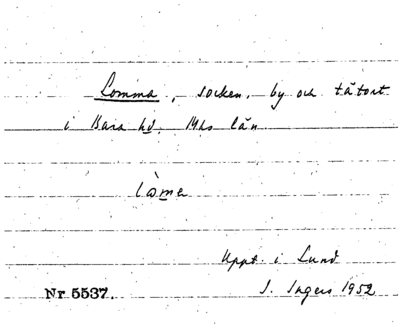 Lomma, socken, by och tätort
i Bara hd. Mhs län
lòme
Uppt. i Lund
I. Ingers 1952
Nr 5537.